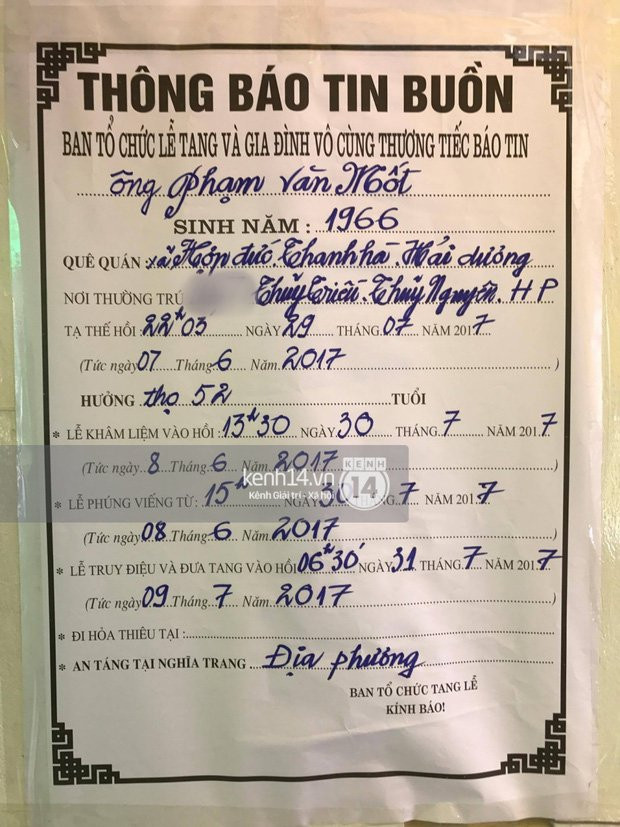 THÔNG BÁO TIN BUỒN
BAN TỔ CHỨC LỄ TANG VÀ GIA ĐÌNH VÔ CÙNG THƯƠNG TIẾC BÁO TIN
ông Phạm Văn Mốt
SINH NĂM : 1966
QUÊ QUÁN : xã Hợp đức. Thanh hà. Hải dương
NƠI THƯỜNG TRÚ Thuỷ Triều. Thuỷ Nguyên. HP
TẠ THẾ HỒI : 22h 03 NGÀY 29 THÁNG 07 NĂM 2017
(Tức ngày 07 Tháng 6 Năm 2017)
HƯỞNG thọ 52 TUỔI
* LỄ KHÂM LIỆM VÀO HỒI : 13h30 NGÀY 30 THÁNG 7 NĂM 2017
(Tức ngày 8 Tháng 6 Năm 2017)
kenh14.vn KENH 14
Kênh Giải trí - Xã hội
* LỄ PHÚNG VIẾNG TỪ : 15h 30 7 NĂM 2017
(Tức ngày 08 Tháng 6 Năm 2017)
* LỄ TRUY ĐIỆU VÀ ĐƯA TANG VÀO HỒI 06h30' NGÀY 31 THÁNG 7 NĂM 2017
(Tức ngày 09 Tháng 7 Năm 2017)
* ĐI HỎA THIÊU TẠI :
* AN TÁNG TẠI NGHĨA TRANG Địa phương
BAN TỔ CHỨC TANG LỄ
KÍNH BÁO!